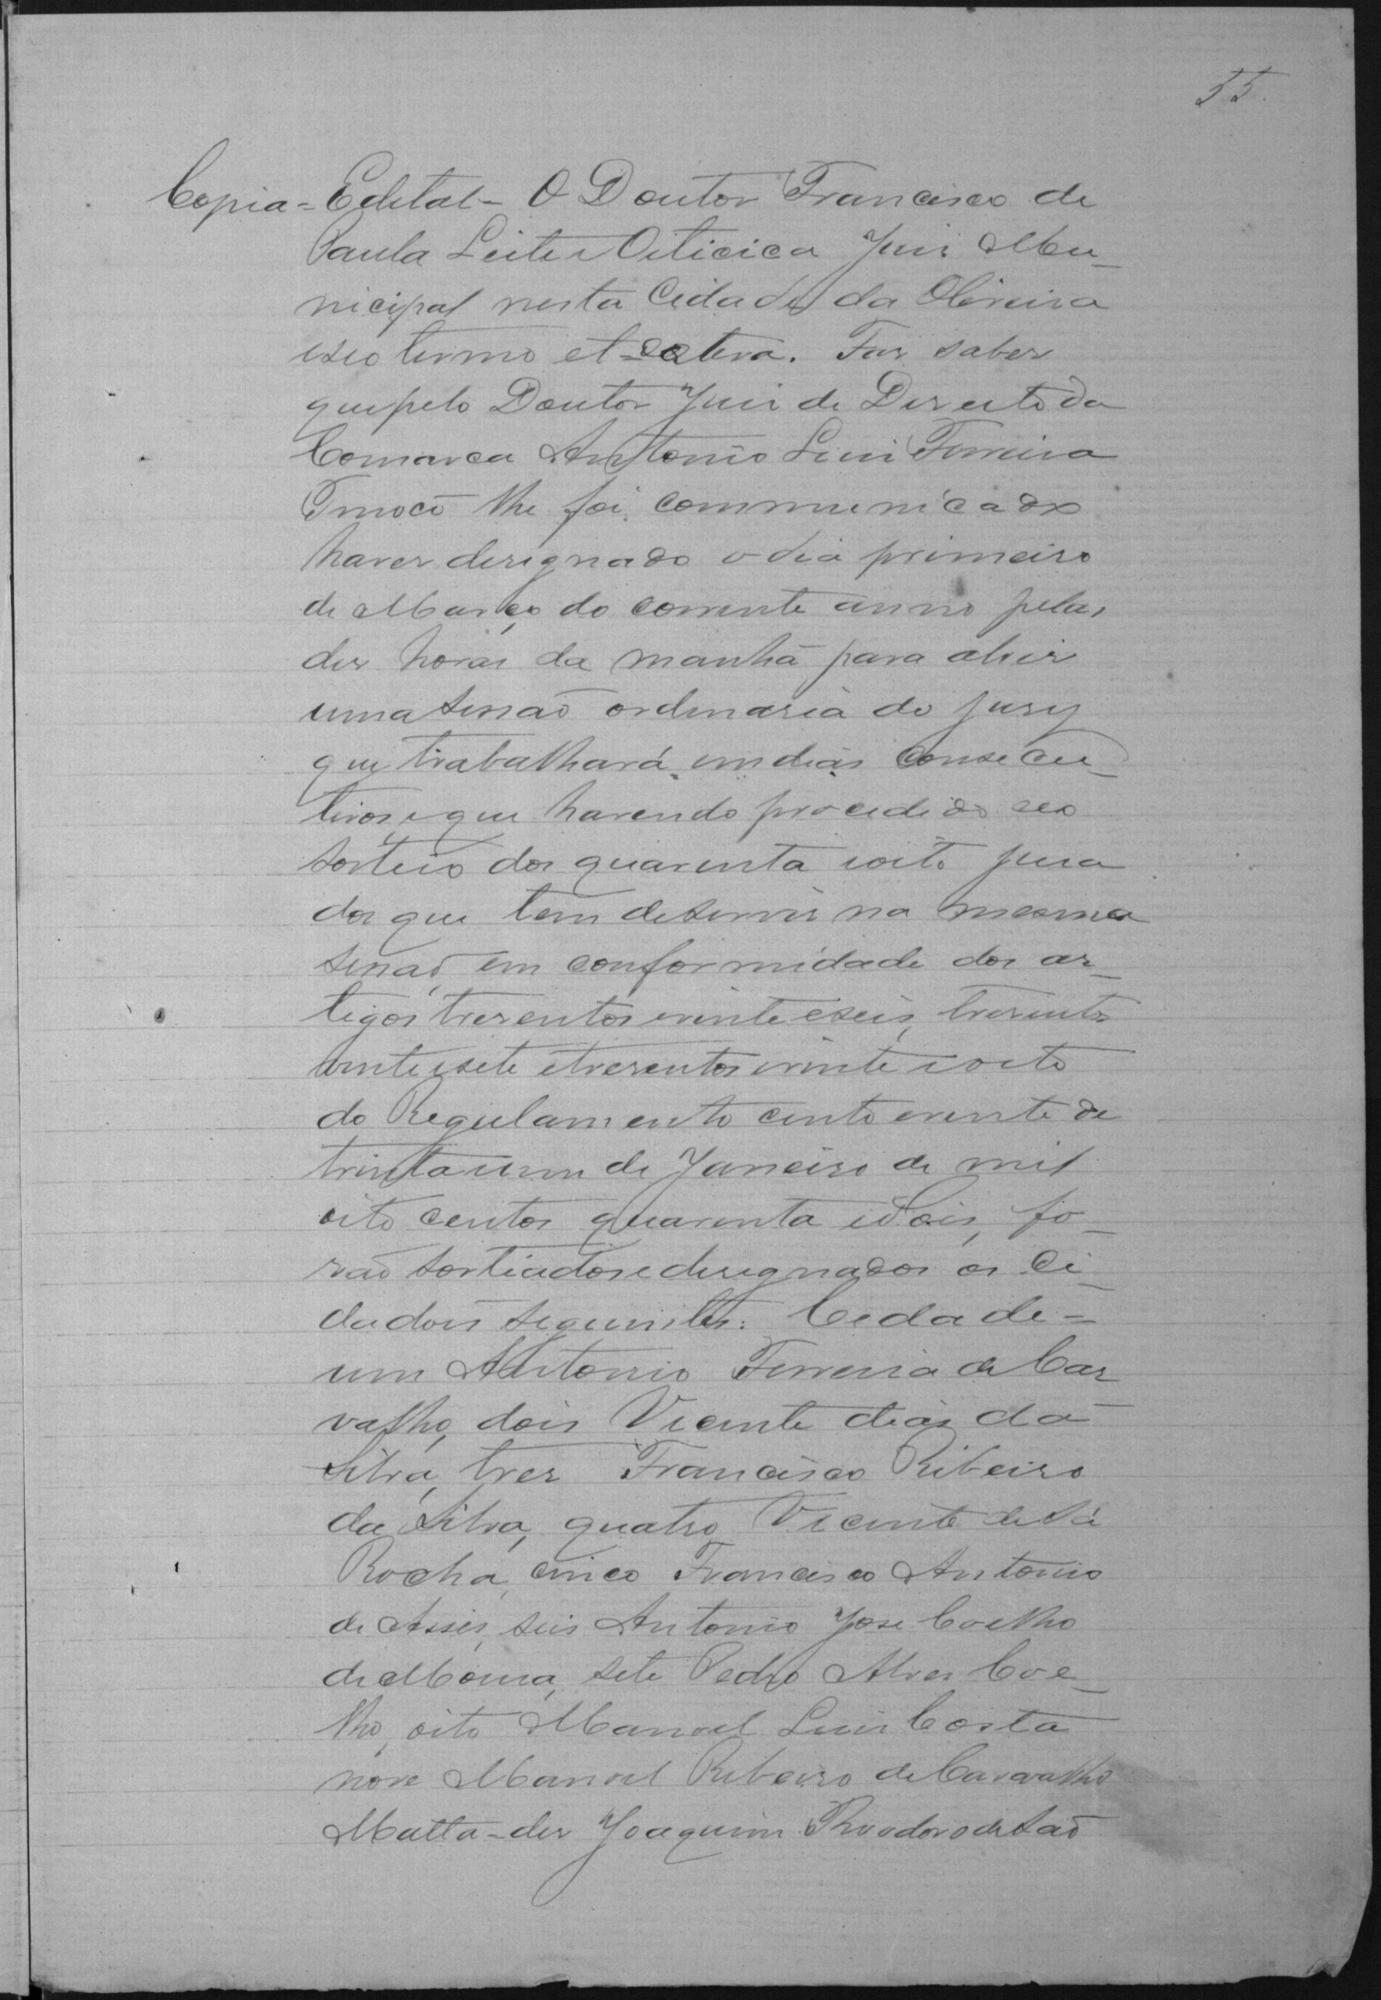 55.
Copia = Edital - O Doutor Francisco de
Paula Leite e Oiticica Juiz Mu-
nicipal nesta Cidade da Oliveira
e seo termo et cetera. Faz saber
que pelo Doutor Juiz de Direito da
Comarca Antonio Luiz Ferreira
Tinoco lhe foi communicado
haver designado o dia primeiro
de Março do corrente anno pelas
dez horas da manhã para abrir
uma sessaõ ordinaria do jury
que trabalhará em dias consecu-
tivos, e que havendo procedido seo
sorteio dos quarenta e oito jura
dos que tem de servir na mesma
sessaõ, em conformidade dos ar-
tigos trezentos e vinte e seis, trezentos
vinte e sete e trezentos e vinte e oito
do Regulamento cento e vinte de
trinta e um de Janeiro de mil
oito centos quarenta e dois, fo-
raõ sortiados e designados os Ci-
dadoẽs seguintes: Cidade =
um Antonio Ferreira de Car
valho, dois Vicente dias da
Silva, tres Francisco Ribeiro
da Silva, quatro Vicente de Sá
Rocha, cinco Francisco Antonio
de Assis, seis Antonio José Coelho
de Moura, sete Pedro Alves Coe-
lho, oito Manoel Luis Costa
nove Manoel Ribeiro de Carvalho
Matta - dez Joaquim Theodoro de Saõ